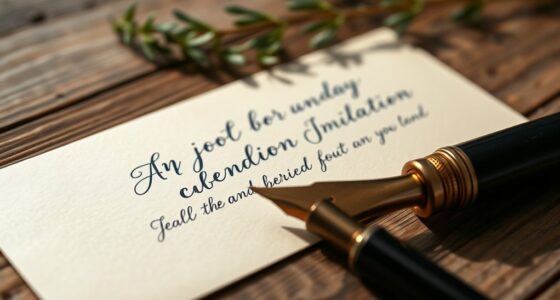 An joot bor unday
cubendion Jmilation
Jeall the and beried fout an you land